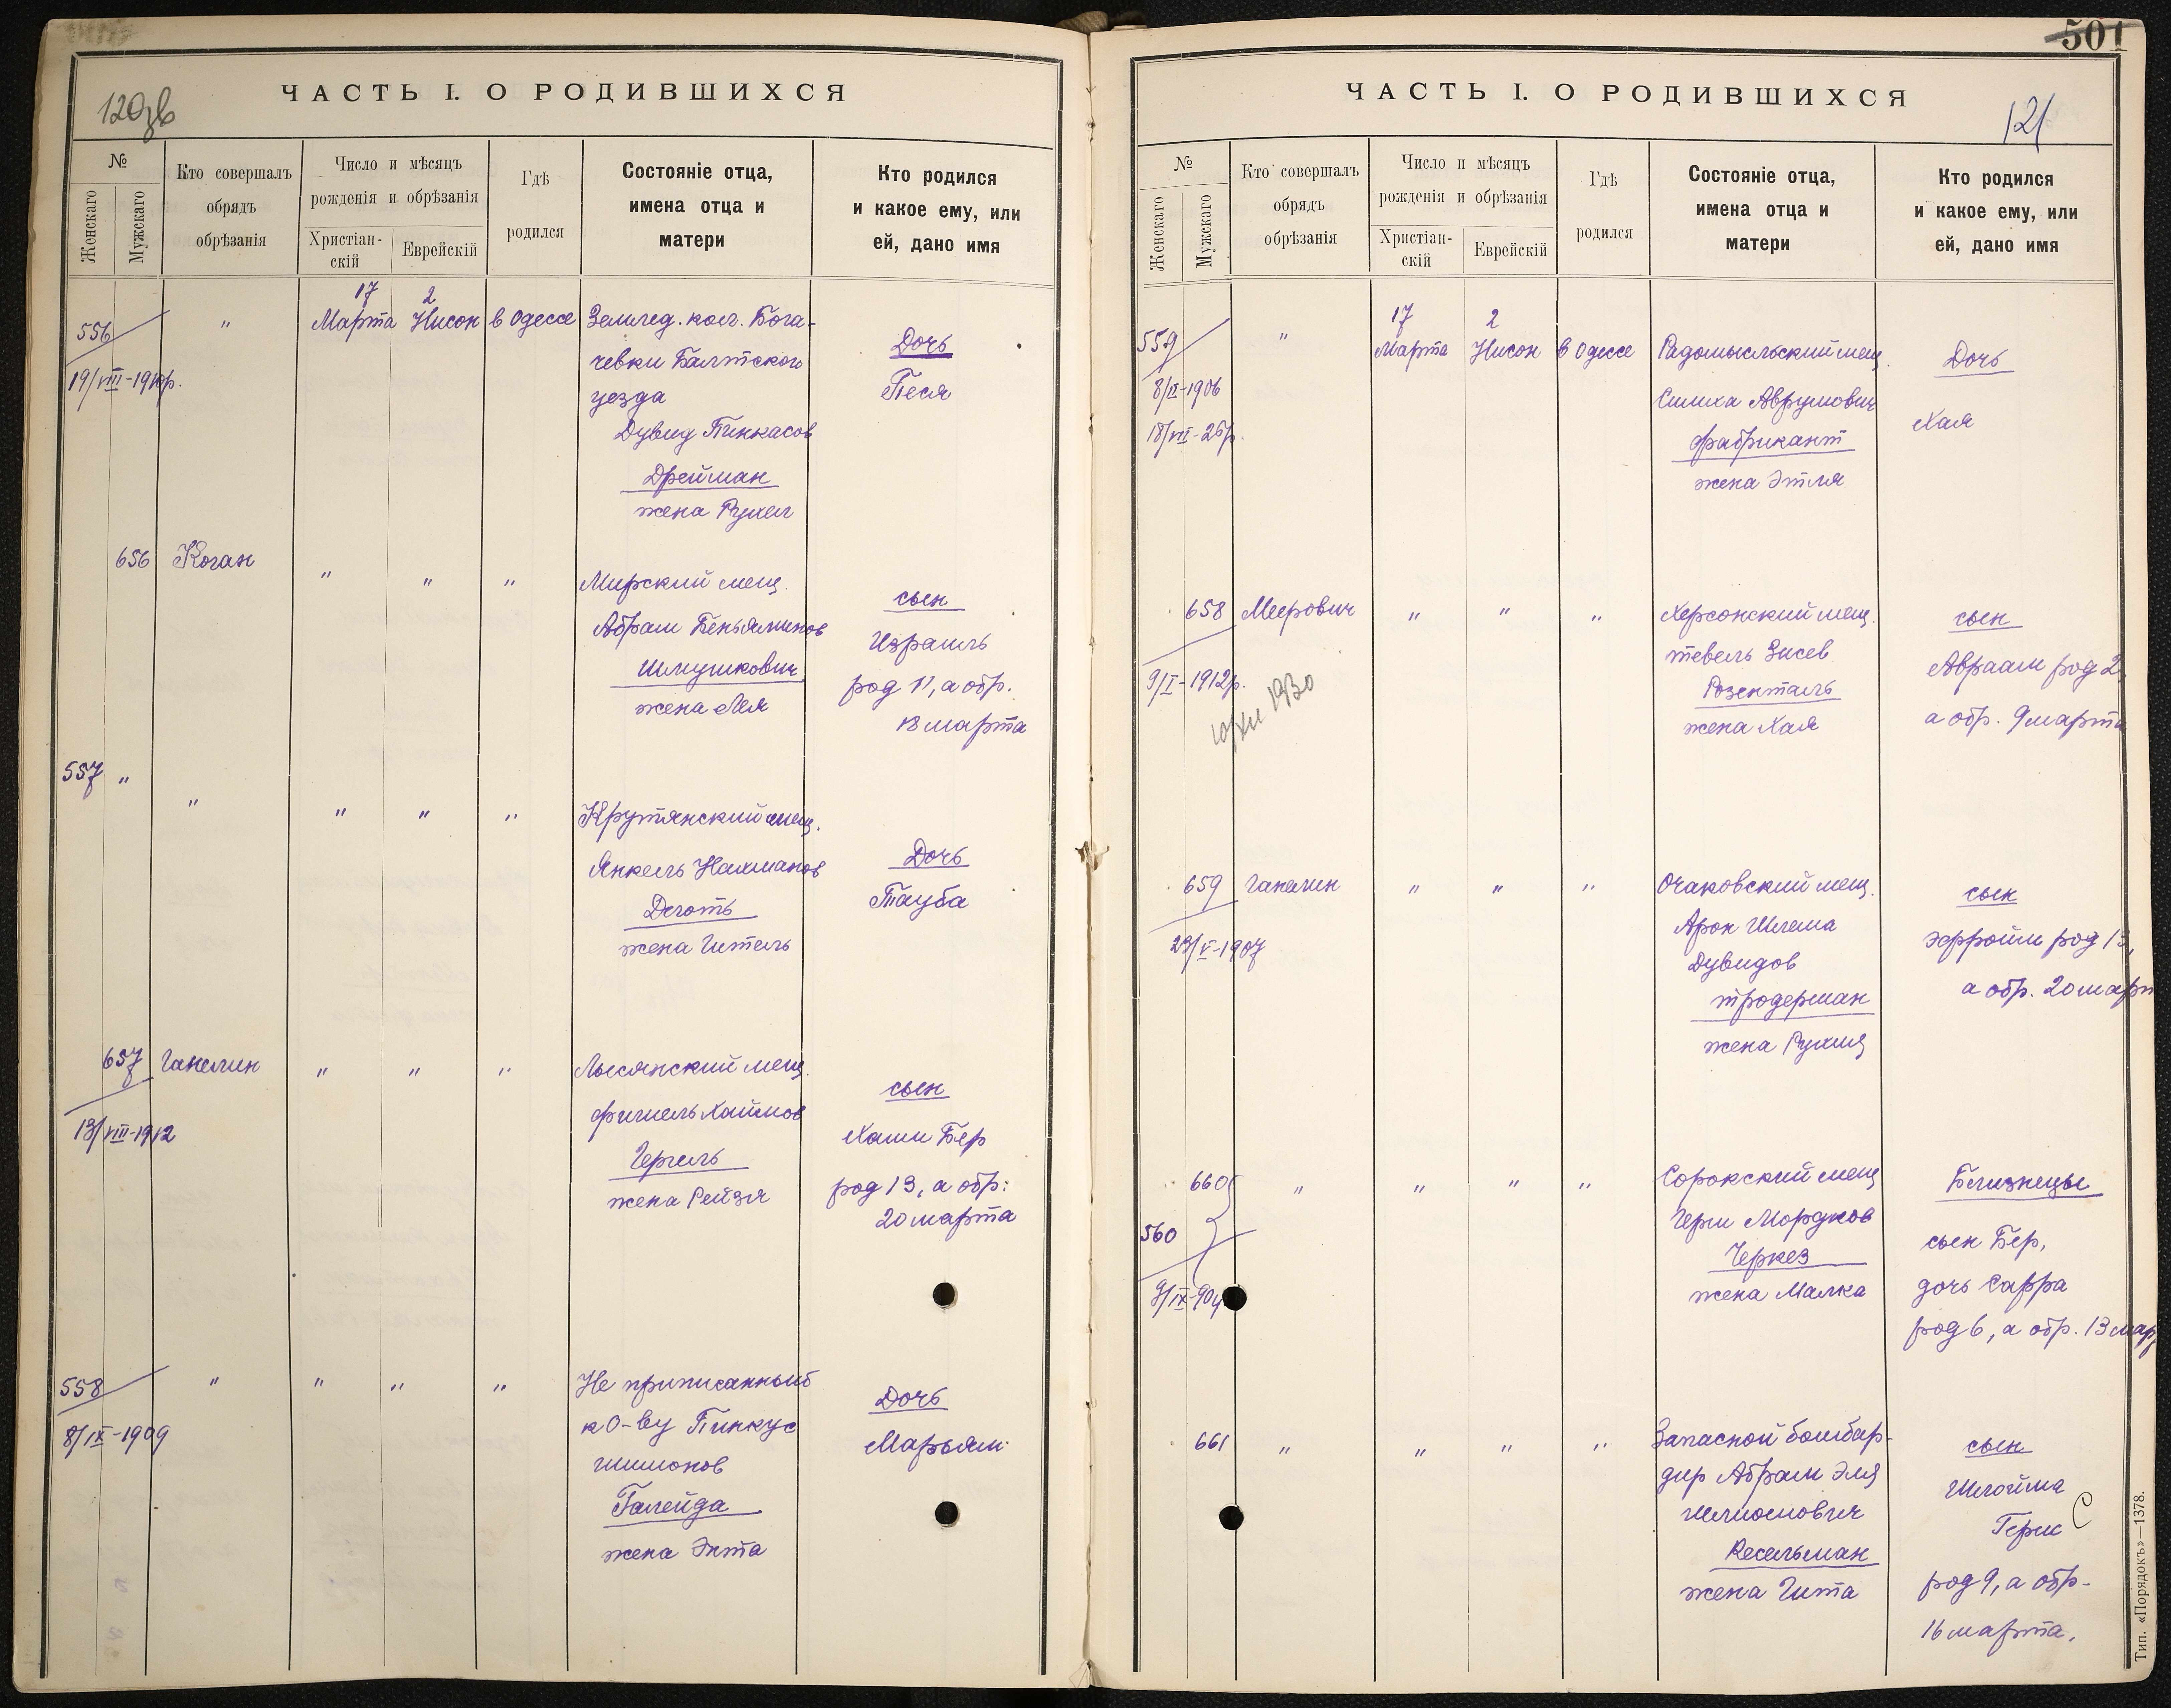 ЧАСТЬ I. О РОДИВШИХСЯ
№
Женскаго
Мужскаго
Кто совершалъ
обрядъ
обрѣзанія
Число и мѣсяцъ
рожденія и обрѣзанія
Христіан-
скій
Еврейскій
Гдѣ
родился
Состояніе отца,
имена отца и
матери
Кто родился
и какое ему, или
ей, дано имя
556
"
17
Марта
2
Нисон
в Одессе
Землед. кол. Бога-
чевки Балтского
уезда
Дувид Пинкасов
Дрейман
жена Рухел
Дочь
Песя
656
Коган
"
"
"
Мирский мещ.
Абрам Беньяминов
Шмушкович
жена Лея
сын
Израиль
род 11, а обр.
18 марта
557
"
"
"
"
"
Крутянский мещ.
Янкель Нахманов
Деготь
жена Гитель
Дочь
Тауба
657
Ганелин
13/VIII-1912
"
"
"
Лысянский мещ.
Фишель Хаимов
Гергель
жена Рейзя
сын
Хаим Бер
род 13, а обр:
20 марта
558
8/IX-1909
"
"
"
"
Не приписанный
к О-ву Пинкус
Шимонов
Галейда
жена Энта
Дочь
Марьям
501
ЧАСТЬ I. О РОДИВШИХСЯ
121
№
Женскаго
Мужскаго
Кто совершалъ
обрядъ
обрѣзанія
Число и мѣсяцъ
рожденія и обрѣзанія
Христіан-
скій
Еврейскій
Гдѣ
родился
Состояніе отца,
имена отца и
матери
Кто родился
и какое ему, или
ей, дано имя
559
18/VII-26р.
"
17
Марта
2
Нисон
в Одессе
Радомысльский мещ.
Симха Аврумович
Фабрикант
жена Этля
Дочь
Хая
658
Меерович
9/I-1912р.
10/XII 1930
"
"
"
Херсонский мещ.
Тевель Зисев
Розенталь
жена Хая
сын
Авраам род 2,
а обр. 9 марта
659
Ганелин
23/V-1907
"
"
"
Очаковский мещ.
Арон Шлема
Дувидов
Тродерман
жена Рухля
сын
Эфроим род 13,
а обр. 20 март
660
560
9/IX-904
"
"
"
"
Сорокский мещ
Герш Мордков
Черкез
жена Малка
Близнецы
сын Бер,
дочь Сарра
род 6, а обр. 13 мар
661
"
"
"
"
Запасной бомбар-
дир Абрам Эля
Кесельман
жена Гита
сын
Шлойма
Герш
род 9, а обр-
16 марта.
Тип. «Порядокъ»—1378.